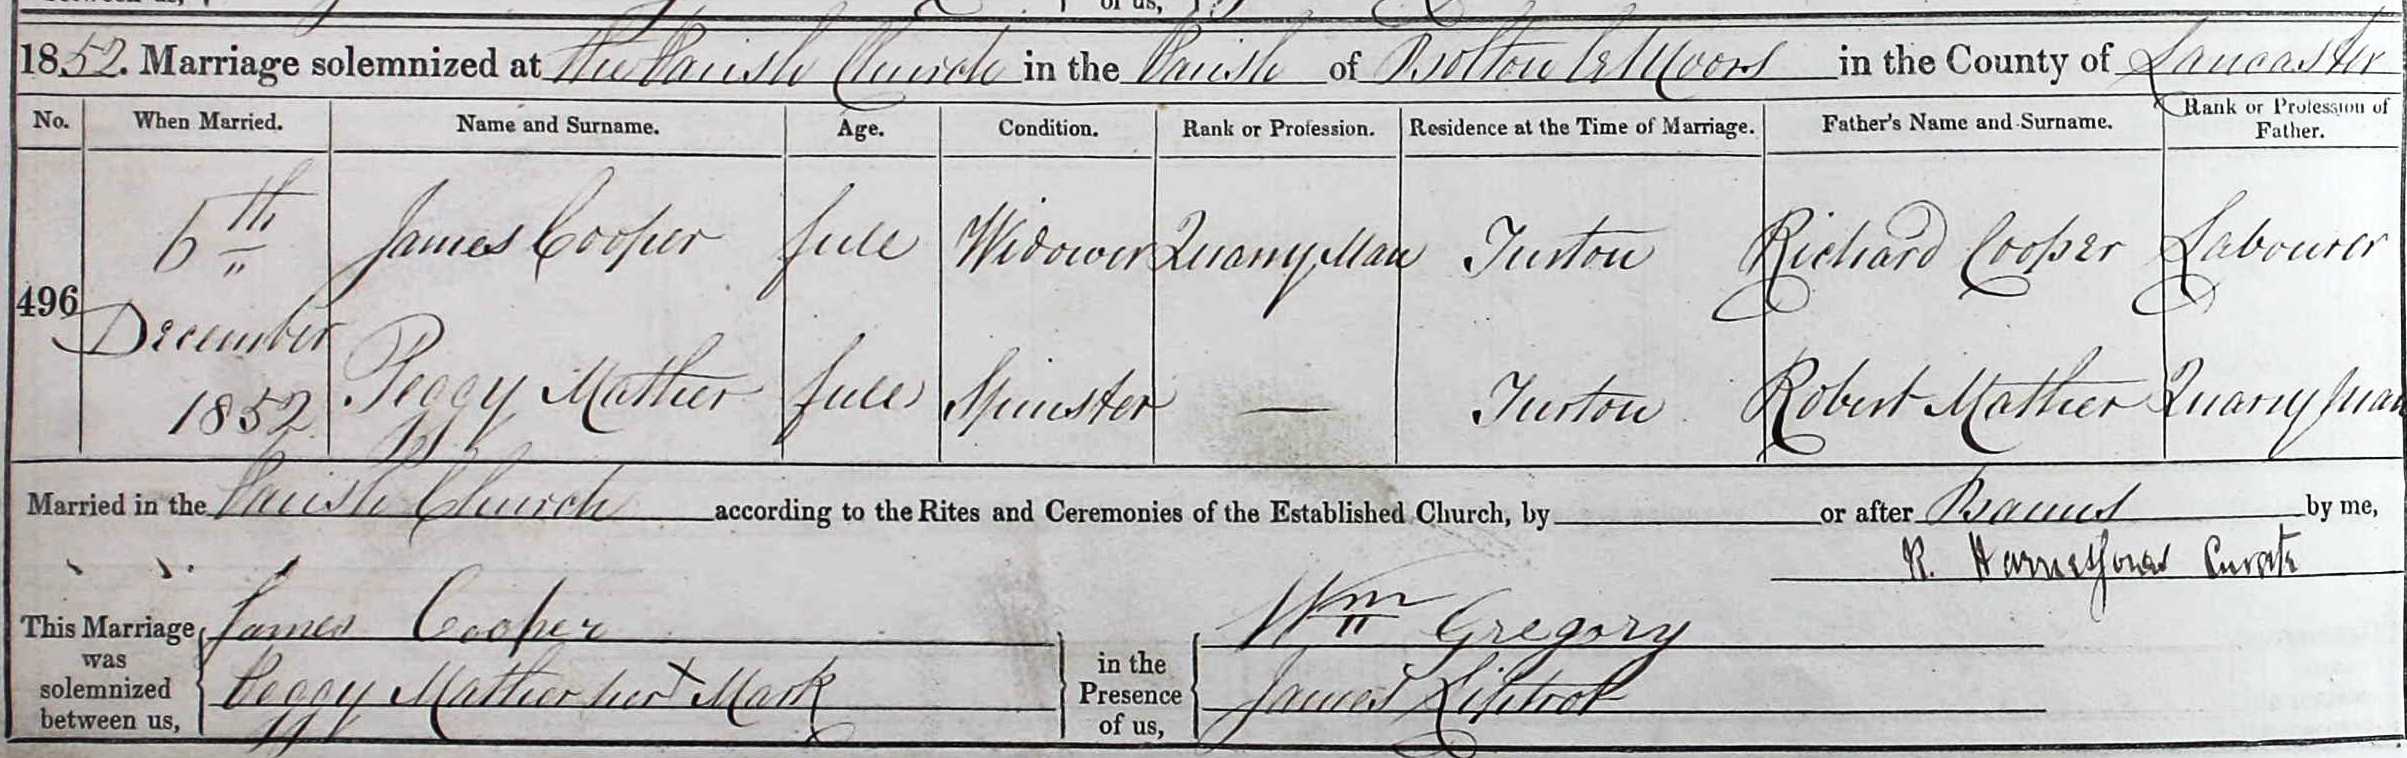 of us,
1852. Marriage solemnized at the Parish Church in the Parish of Bolton le Moors in the County of Lancaster
No. When Married. Name and Surname. Age. Condition. Rank or Profession. Residence at the Time of Marriage. Father's Name and Surname. Rank or Profession of Father.
6th James Cooper full Widower Quarry Man Turton Richard Cooper Labourer
496
December
1852 Peggy Mather full Spinster — Turton Robert Mather Quarry man
Married in the Parish Church according to the Rites and Ceremonies of the Established Church, by or after Banns by me,
R. Curate
This Marriage was solemnized between us,
James Cooper
Peggy Mather her X Mark
in the Presence of us,
Wm Gregory
James Liptrot